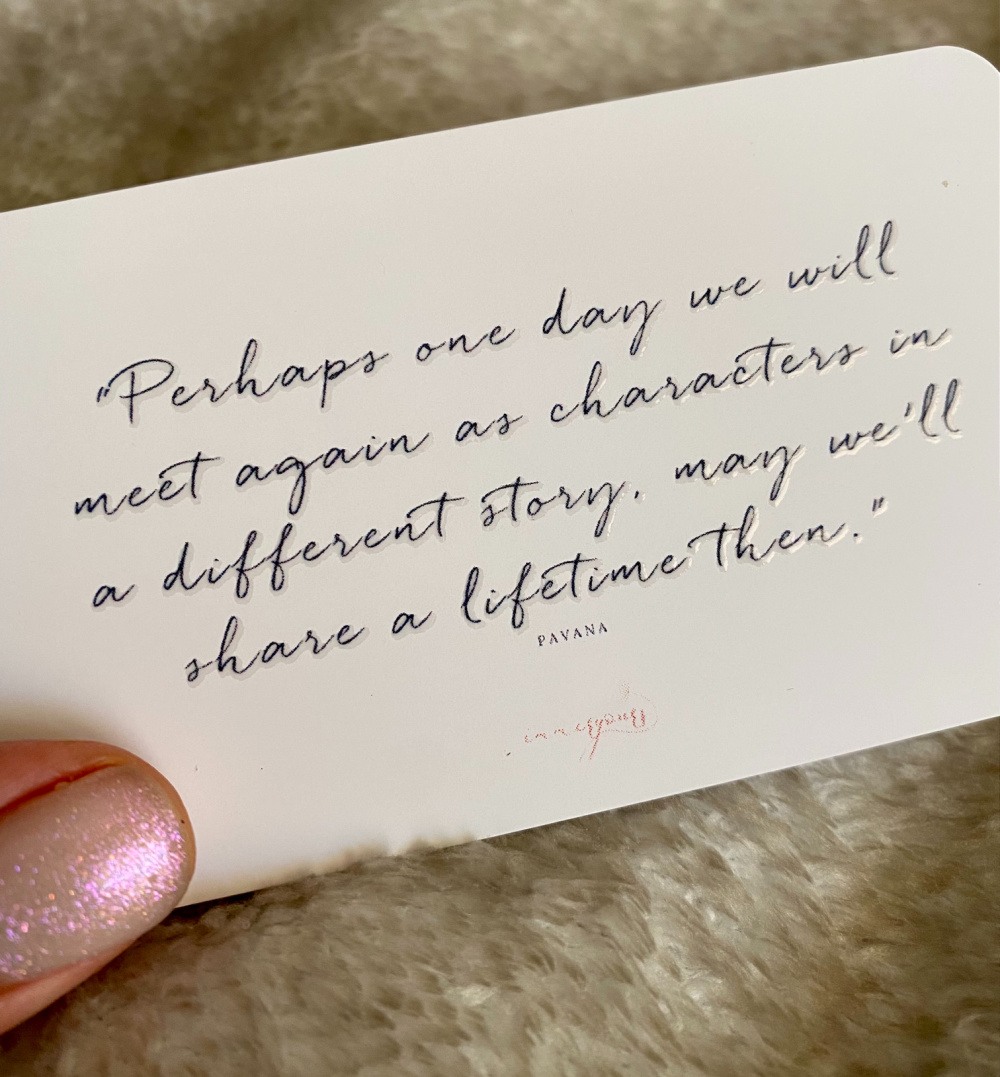 "Perhaps one day we will
meet again as characters in
a different story, may we'll
share a lifetime then."
PAVANA